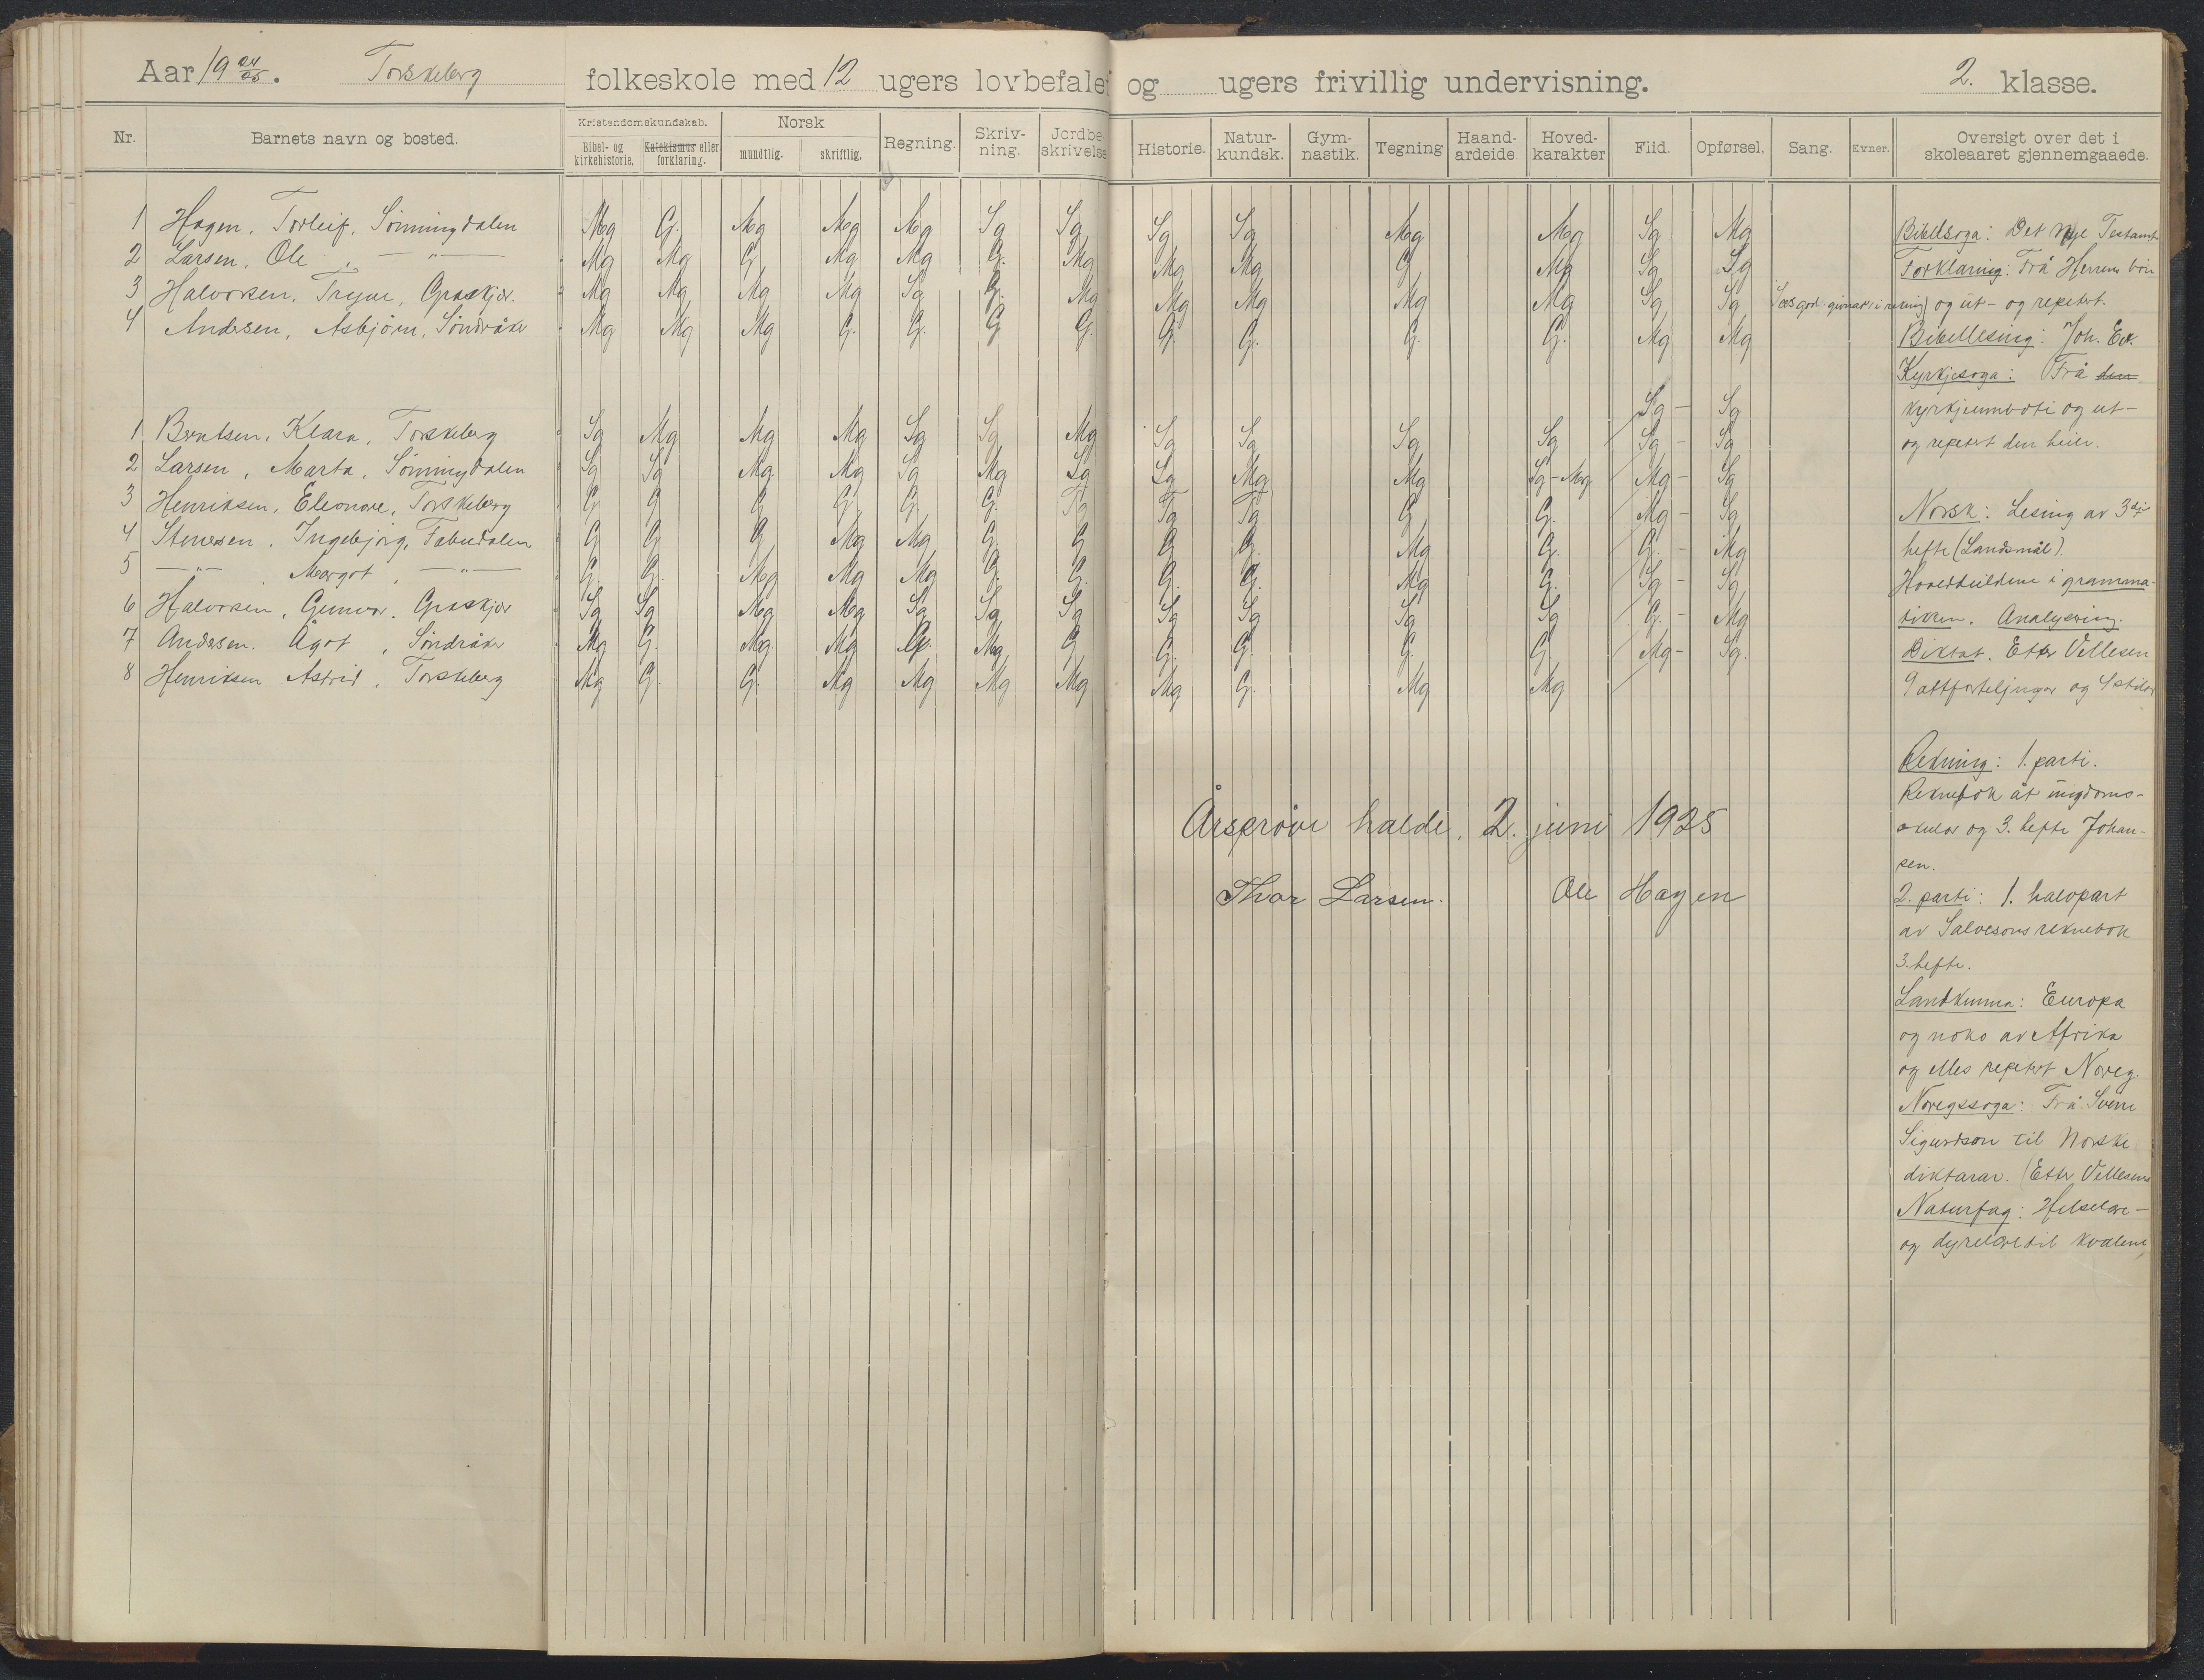 Aar 19 24/25. Torskeberg folkeskole med 12 ugers lovbefalet og ugers frivillig undervisning. 2. klasse.
Nr. Barnets navn og bosted. Kristendomskundskab. Bibel- og kirkehistorie. Katekismus eller forklaring. Norsk mundtlig. skriftlig. Regning. Skriv-ning. Jordbe-skrivelse Historie. Natur-kundsk. Gym-nastik. Tegning Haand-arbeide Hoved-karakter Flid. Opførsel. Sang. Evner. Oversigt over det i skoleaaret gjennemgaaede.
1 Hagen, Torleif, Sønningdalen Mg G. Mg Mg Mg Sg Sg Sg Sg Mg Mg Sg Mg
2 Larsen, Ole, — " — Mg Mg G Mg Mg G. Mg Mg Mg G Mg Sg Sg
3 Halvorsen, Trygve, Graskjær. Mg Mg Mg Mg Sg G. Mg Mg Mg Mg Mg Sg Sg
4 Andersen, Asbjørn, Søndråke Mg Mg Mg G. G. G G. G. G. G. G. Mg Mg
Sg - Sg
1 Berntsen, Klara, Torskeberg Sg Mg Mg Mg Sg Sg Mg Sg Sg Sg Sg Sg - Sg
2 Larsen, Marta, Sønningdalen Sg Sg Mg Mg Sg Mg Sg Sg Mg Mg Sg-Mg Mg - Sg
3 Henriksen, Eleonore, Torskeberg G G G G G. G. Tg Tg Tg G G. Mg - Sg
4 Stenersen, Ingebjørg, Fabudalen G G G Mg Mg G. G G G. Mg G. G. - Mg
5 — " — , Margot, — " — G. G. Mg Mg Mg G. G. G. G. Mg G. Sg - Sg
6 Halvorsen, Gunvor, Graskjær Sg Sg Mg Mg Sg Sg Sg Sg Sg Sg Sg G. - Mg
7 Andersen. Ågot, Søndråke Mg G. Mg Mg G. Mg G G. G. G. G. Mg - Sg.
8 Henriksen Astrid, Torskeberg Mg G. G. Mg Mg Mg Mg Mg G. Mg Mg
Årsprøve halde. 2. juni 1925
Thor Larsen. Ole Hagen
Bibelsoga: Det nye Testamt
Forklaring: Frå Herrens bøn
og ut- og repetert.
Bibellesing: Joh. Ev.
Kyrkjesoga: Frå den
kyrkjeumbøti og ut-
og repetert den heile.
Norsk: Lesing av 3dje
hefte (Landsmål).
Hovedbuldene i gramma-
tikken. Analysering.
Diktat. Etter Vellesen
9 attforteljingar og 4 stilar
Rekning: 1. parti.
Reknebok åt ungdoms-
skular og 3. hefte Johan-
sen.
2. parti: 1. halvpart
av Salvesons reknebok
3. hefte.
Landkunna: Europa
og noko av Afrika
og elles repetert Noreg.
Noregssoga: Frå Sverre
Sigurdson til Norske
diktarar. (Etter Vellesens
Naturfag: Helselære-
og dyrelære til kvalene,